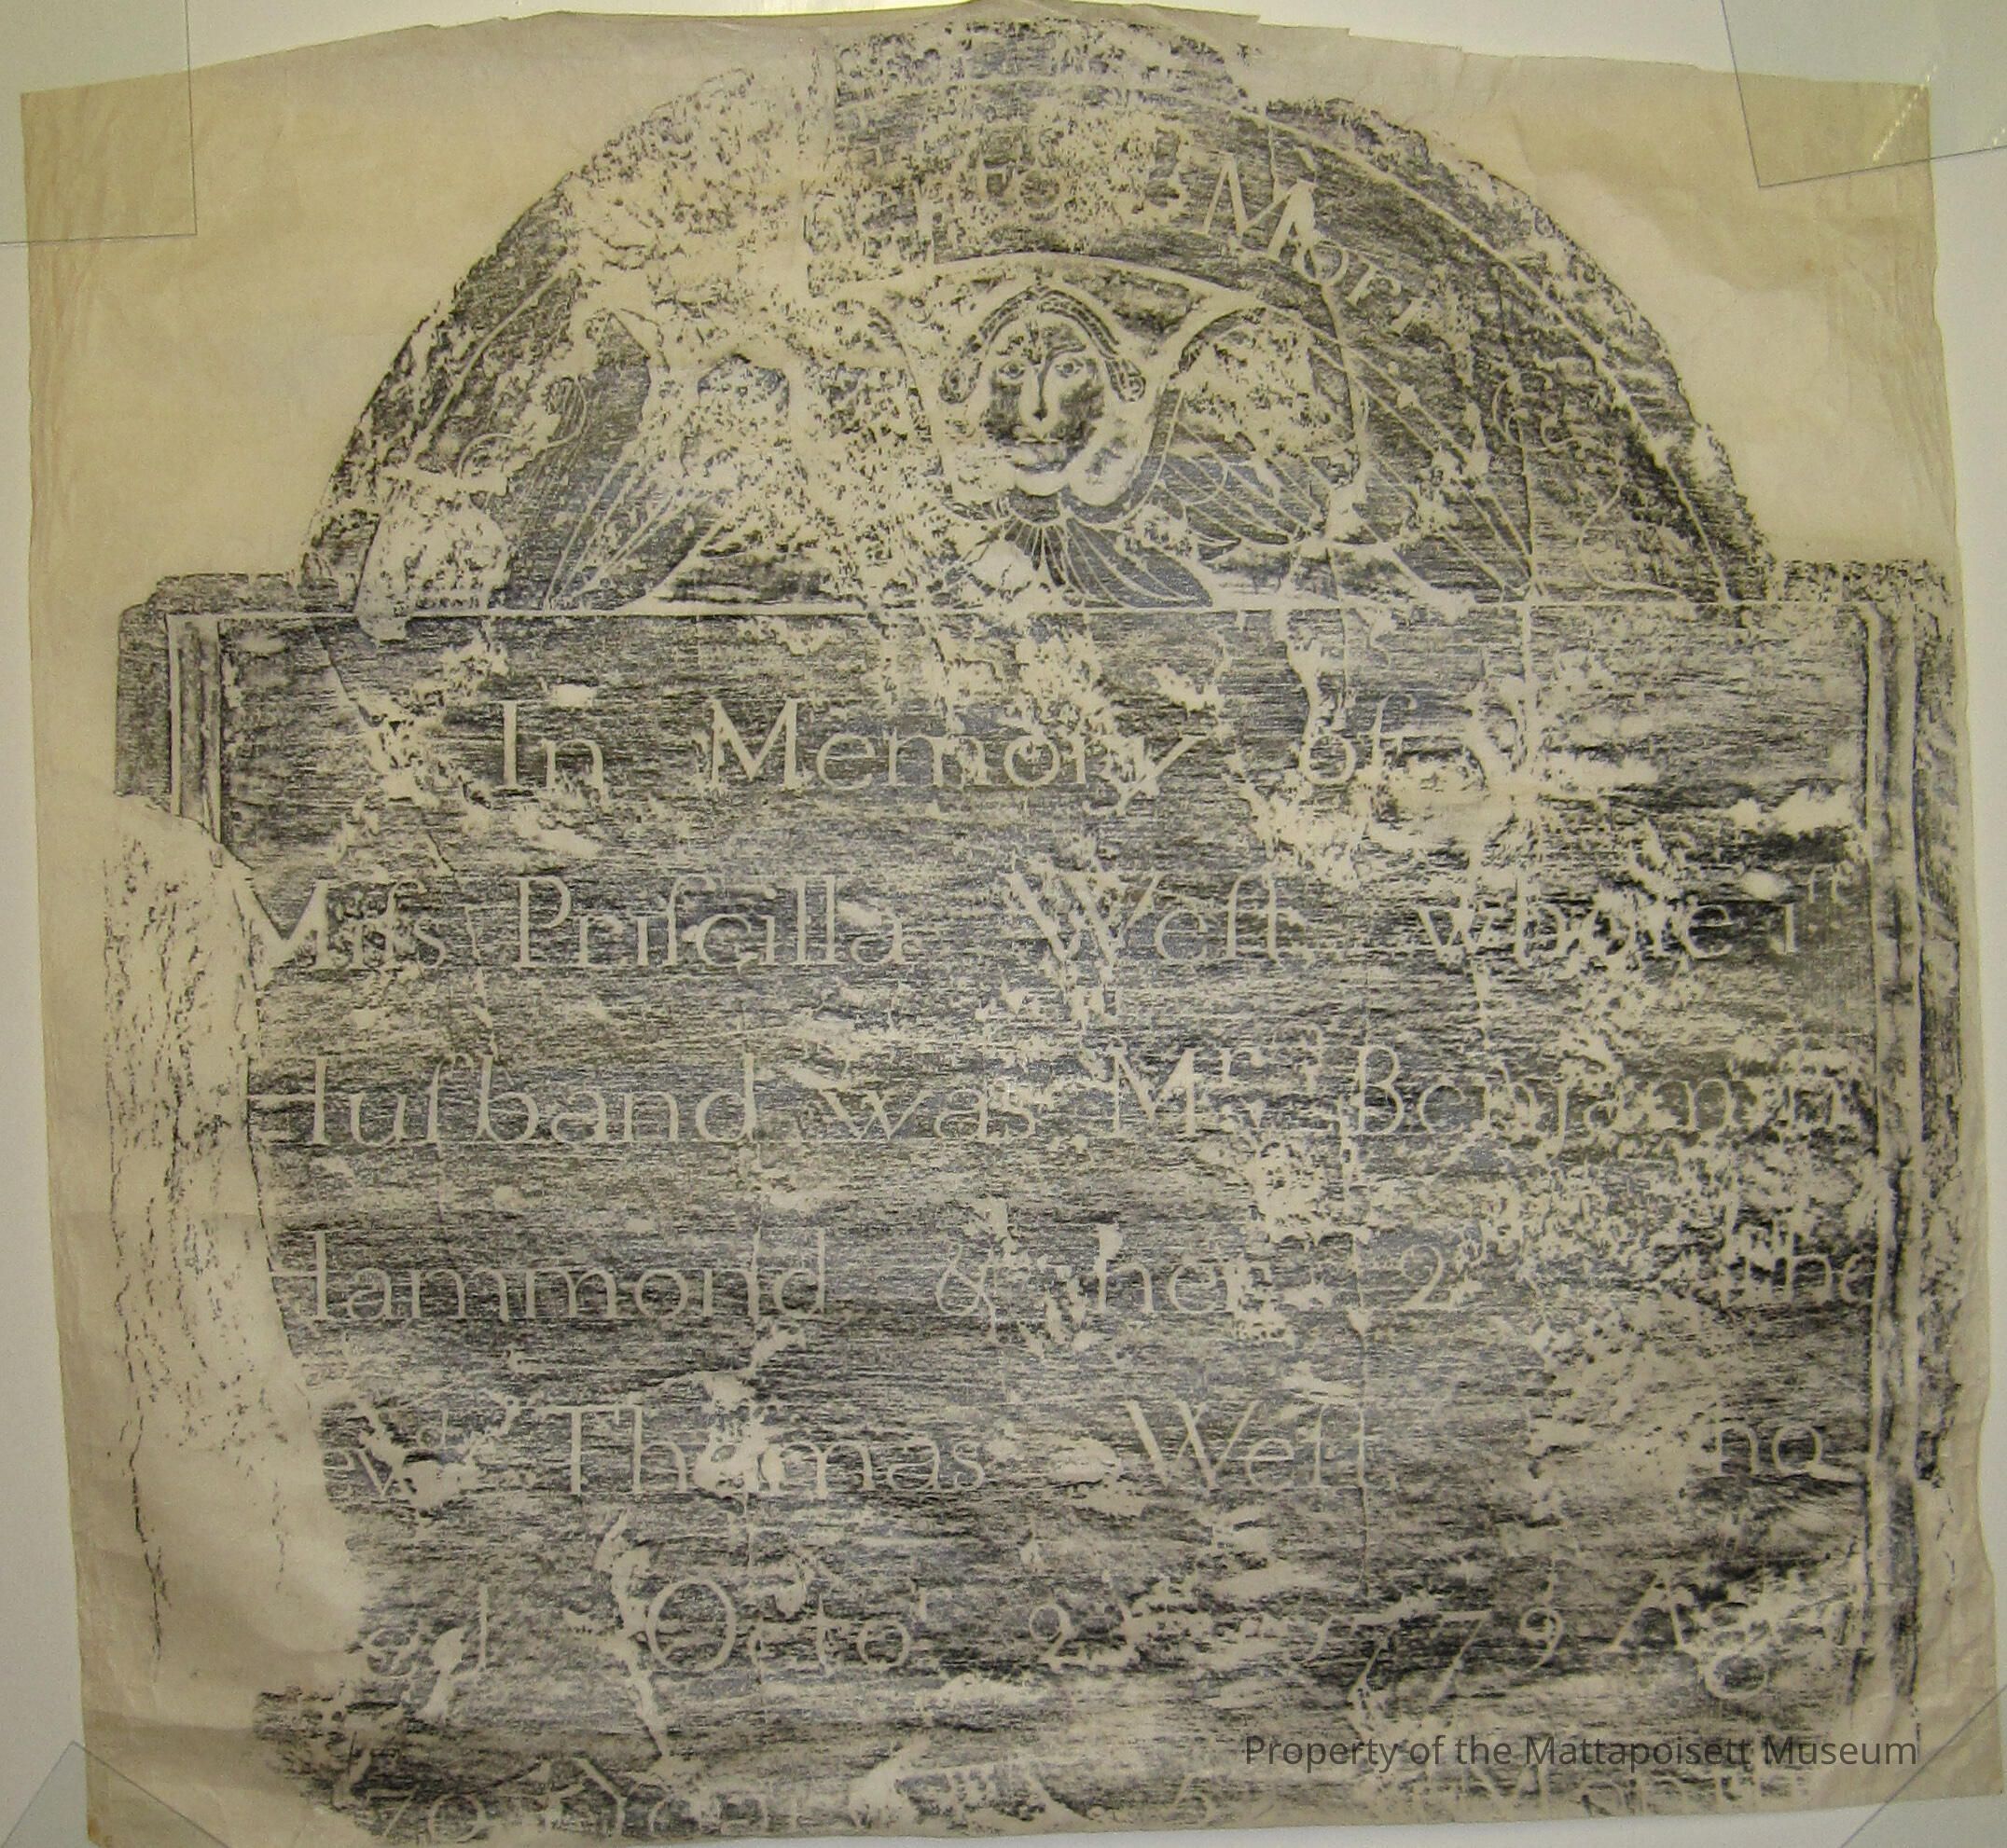 Mori
In Memory of
Miſs Priſcilla Weſt whoſe 1ſt
Huſband was Mr Benjamin
Hammond & her 2 the
Thomas Weſt
Octor 2 1779 Aged
70 Years 5 Months
Property of the Mattapoisett Museum